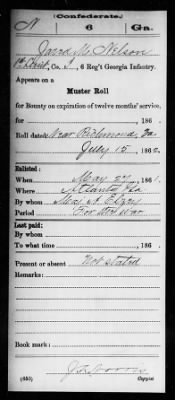 (Confederate.)
N 6 Ga.
M. Nelson
Co. 6 Reg't Georgia Infantry.
Appears on a
Muster Roll
for Bounty on expiration of twelve months' service,
for , 186 .
Roll dated Near Richmond, Va.
July 15, 1862.
Enlisted:
When May 27, 1861.
Where Atlanta Ga
By whom Maj
Period For the war
Last paid:
By whom
To what time , 186 .
Present or absent Not stated
Remarks:
Book mark:
Copyist.